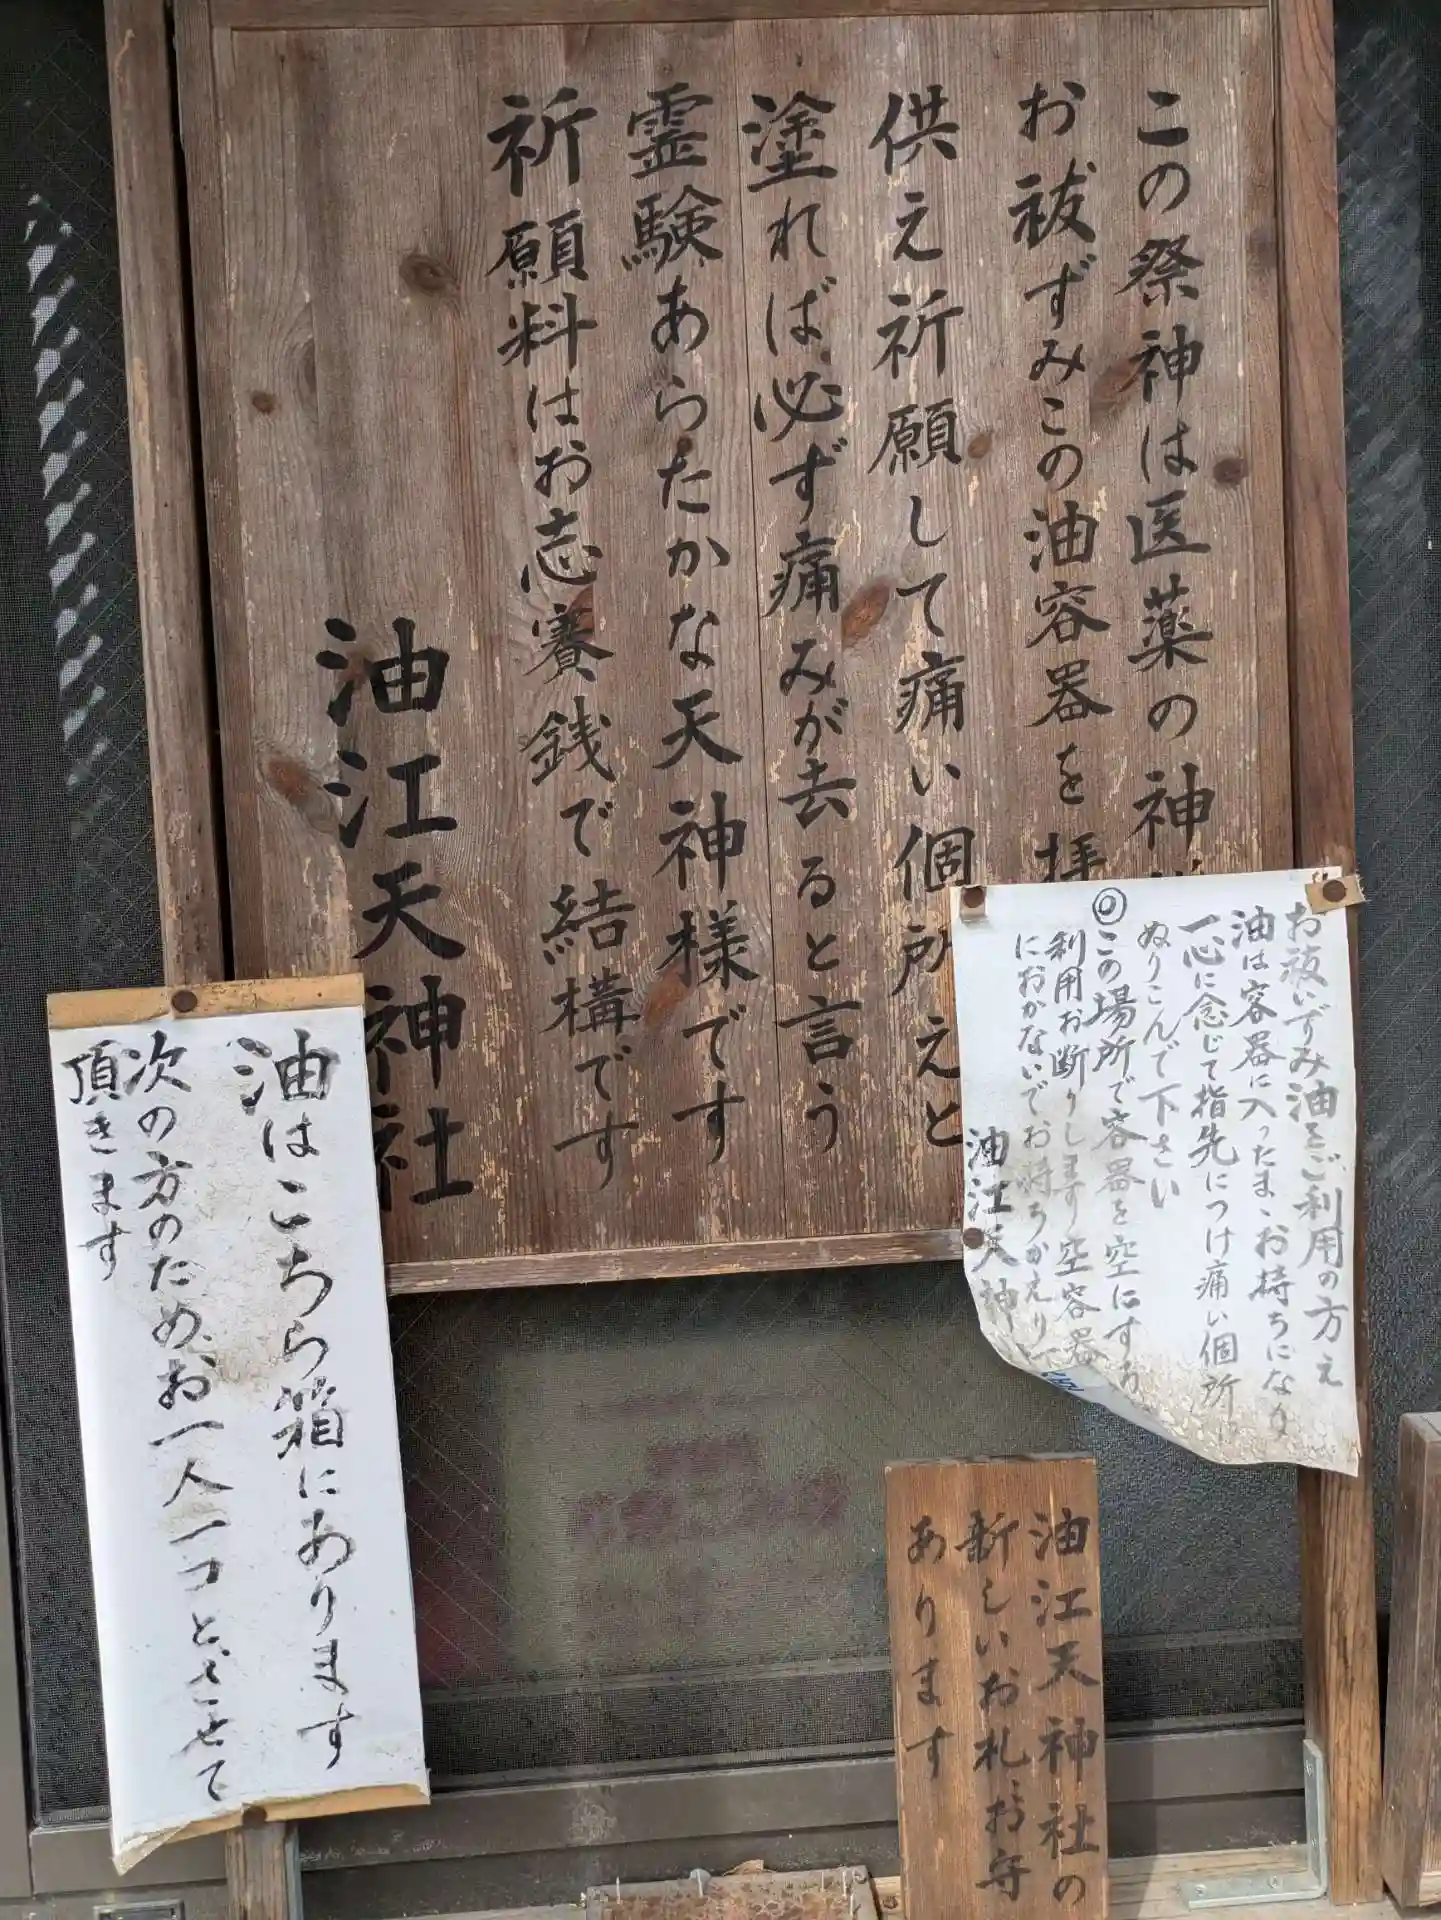 この祭神は医薬の神
お祓ずみこの油容器を拝
供え祈願して痛い個所えと
塗れば必ず痛みが去ると言う
霊験あらたかな天神様です
祈願料はお志賽銭で結構です
油江天神社
お祓いずみ油をご利用の方え
油は容器に入ったまゝお持ちになり
一心に念じて指先につけ痛い個所
ぬりこんで下さい
◎この場所で容器を空にする
利用お断りします空容器
におかないでお持ちかえり
油江天神
油はこちら箱にあります
次の方のため、お一人一コとさせて
頂きます
油江天神社の
新しいお札、お守
あります